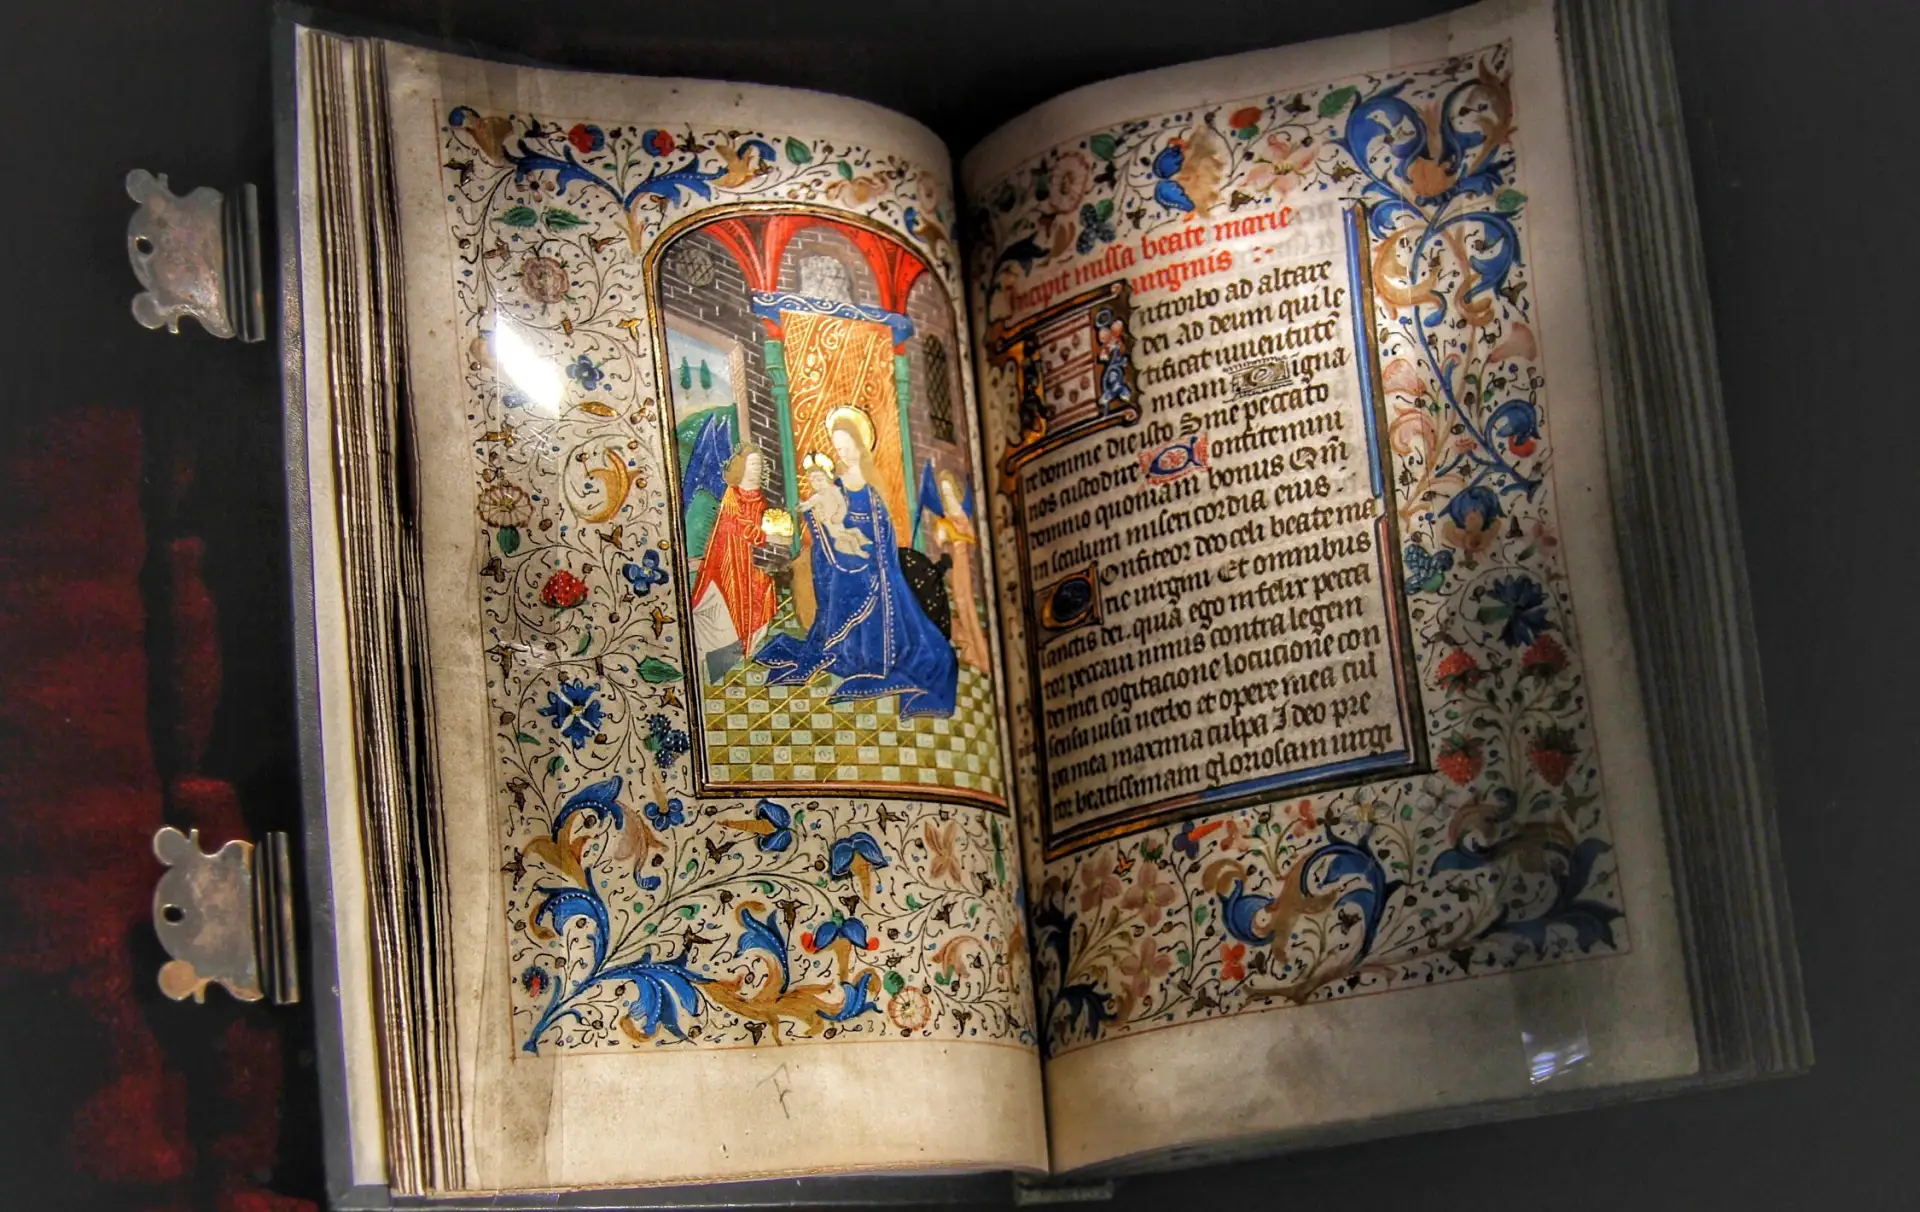 Incipit missa beate marie
uirginis :-
Introibo ad altare
dei Ad deum qui le
tificat iuuentutē
meam Digna
re domine die isto Sine peccato
nos custodire Confitemini
domino quoniam bonus Qm̄
in seculum misericordia eius .
Confiteor deo celi beate ma
rie uirgini Et omnibus
sanctis dei . quia ego infelix pecca
tor peccaui nimis contra legem
dei mei cogitacione locucione con
sensu uisu uerbo et opere mea cul
pa mea maxima culpa Ideo pre
cor beatissimam gloriosam uirgi